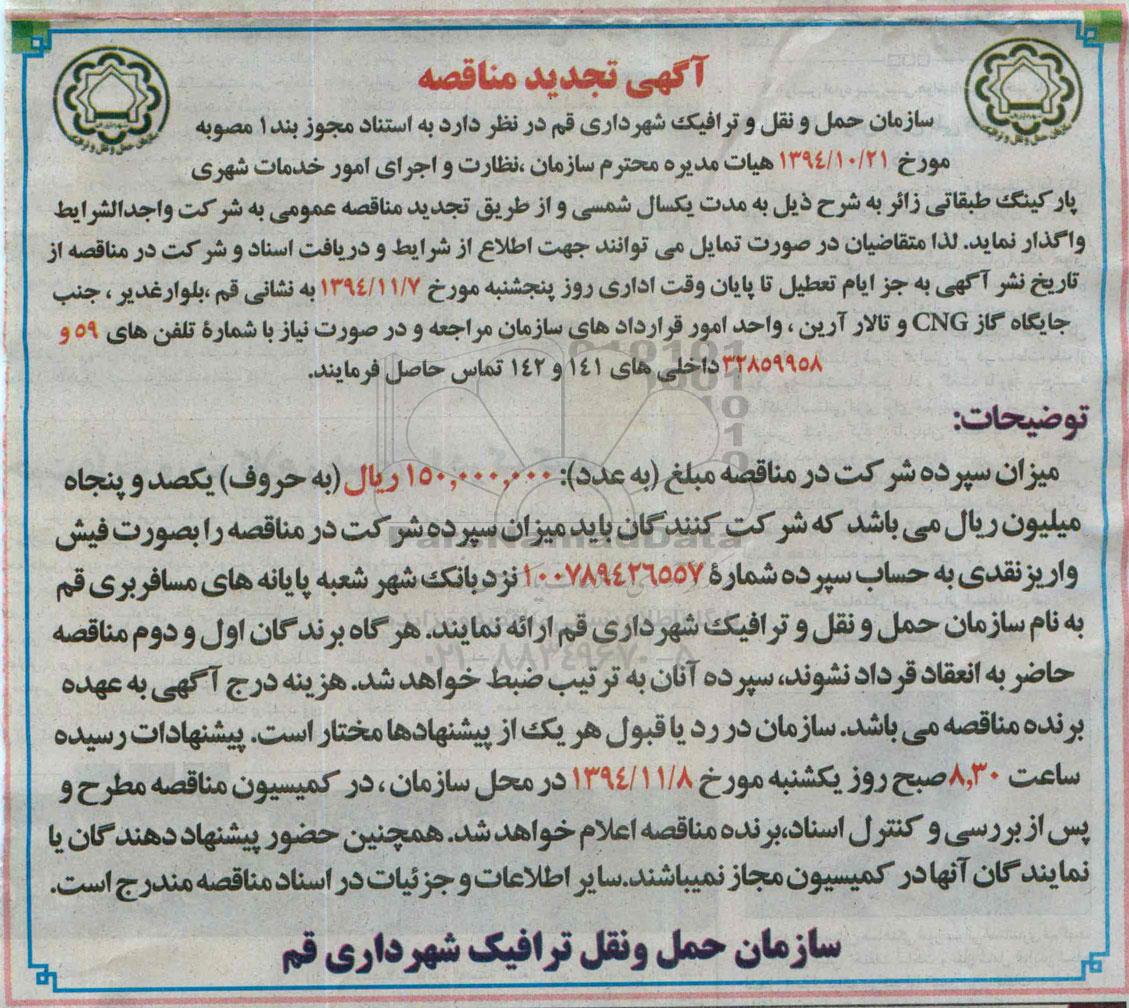 آگهی تجدید مناقصه
سازمان حمل و نقل و ترافیک شهرداری قم در نظر دارد به استناد مجوز بند ۱ مصوبه
مورخ ۱۳۹٤/۱۰/۲۱ هیات مدیره محترم سازمان ،نظارت و اجرای امور خدمات شهری
پارکینگ طبقاتی زائر به شرح ذیل به مدت یکسال شمسی و از طریق تجدید مناقصه عمومی به شرکت واجدالشرایط
واگذار نماید. لذا متقاضیان در صورت تمایل می توانند جهت اطلاع از شرایط و دریافت اسناد و شرکت در مناقصه از
تاریخ نشر آگهی به جز ایام تعطیل تا پایان وقت اداری روز پنجشنبه مورخ ۱۳۹٤/۱۱/۷ به نشانی قم ،بلوارغدیر ، جنب
جایگاه گاز CNG و تالار آرین ، واحد امور قرارداد های سازمان مراجعه و در صورت نیاز با شمارۀ تلفن های ۵۹ و
۳۲۸۵۹۹۵۸ داخلی های ۱٤۱ و ۱٤۲ تماس حاصل فرمایند.
توضیحات:
میزان سپرده شرکت در مناقصه مبلغ (به عدد): ۱۵۰,۰۰۰,۰۰۰ ریال (به حروف) یکصد و پنجاه
میلیون ریال می باشد که شرکت کنندگان باید میزان سپرده شرکت در مناقصه را بصورت فیش
واریز نقدی به حساب سپرده شمارۀ ۱۰۰۷۸۹٤۲٦۵۵۷ نزد بانک شهر شعبه پایانه های مسافربری قم
به نام سازمان حمل و نقل و ترافیک شهرداری قم ارائه نمایند. هرگاه برندگان اول و دوم مناقصه
حاضر به انعقاد قرداد نشوند، سپرده آنان به ترتیب ضبط خواهد شد. هزینه درج آگهی به عهده
برنده مناقصه می باشد. سازمان در رد یا قبول هر یک از پیشنهادها مختار است. پیشنهادات رسیده
ساعت ۸,۳۰ صبح روز یکشنبه مورخ ۱۳۹٤/۱۱/۸ در محل سازمان ، در کمیسیون مناقصه مطرح و
پس از بررسی و کنترل اسناد،برنده مناقصه اعلام خواهد شد. همچنین حضور پیشنهاد دهندگان یا
نمایندگان آنها در کمیسیون مجاز نمیباشند.سایر اطلاعات و جزئیات در اسناد مناقصه مندرج است.
سازمان حمل ونقل ترافیک شهرداری قم
ParsNamadData
۰۲۱-۸۸۳٤۹٦۷۰-۵